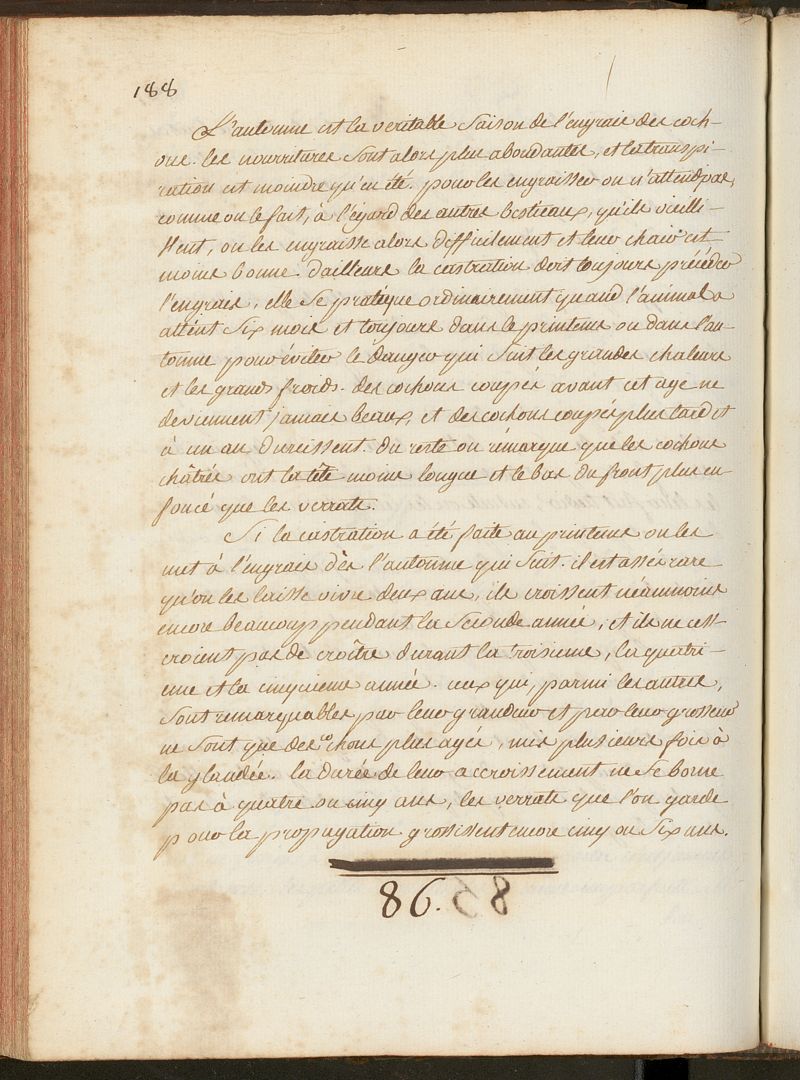 188
L'automne est la veritable saison de l'engrais des coch-
ons. les nourritures sont alors plus abondantes, et la transpi-
ration est moindre qu'en été. pour les engraisser on n'attend pas,
comme on le fait, à l'égard des autres bestiaux, qu'ils vieilli-
ssent, on les engraisse alors difficilement et leur chair est
moins bonne. d'ailleurs la castration doit toujours précéder
l'engrais, elle se pratique ordinairement quand l'animal a
attént six mois et toujours dans le printems ou dans l'au-
tomne pour éviter le danger qui suit les grandes chaleurs
et les grands froids. des cochons coupés avant cet age ne
deviennent jamais beaux, et des cochons coupés plus tard et
à un an durcissent. du reste on rémarque que les cochons
châtrés ont la tête moins longue et le bas du front plus en-
foncé que les verrats.
Si la castration a été faite au printems on les
met à l'engrais dès l'automne qui suit. il est assés rare
qu'on les laisse vivre deux ans, ils croissent néammoins
encore beaucoup pendant la seconde année, et ils ne cess-
eroient pas de croître durant la troisieme, la quatri-
eme et la cinquieme année. ceux qui, parmi les autres,
sont remarquables par leur grandeur et par leur grosseur
ne sont que des cochons plus agés, mis plusieurs fois à
la glandée. la durée de leur accroissement ne se borne
pas à quatre ou cinq ans, les verrats que l'on garde
pour la propagation grossissent encore cinq ou six ans.
86.